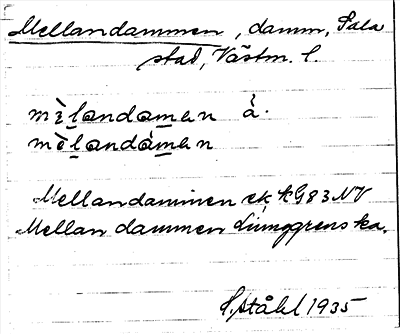 Mellandammen, damm, Sala
stad, Västm. l.
mèlandamen å.
mèlandámen
Mellandammen ek kG83NV
Mellan dammen Ljunggrens ka.
H. Ståhl 1935